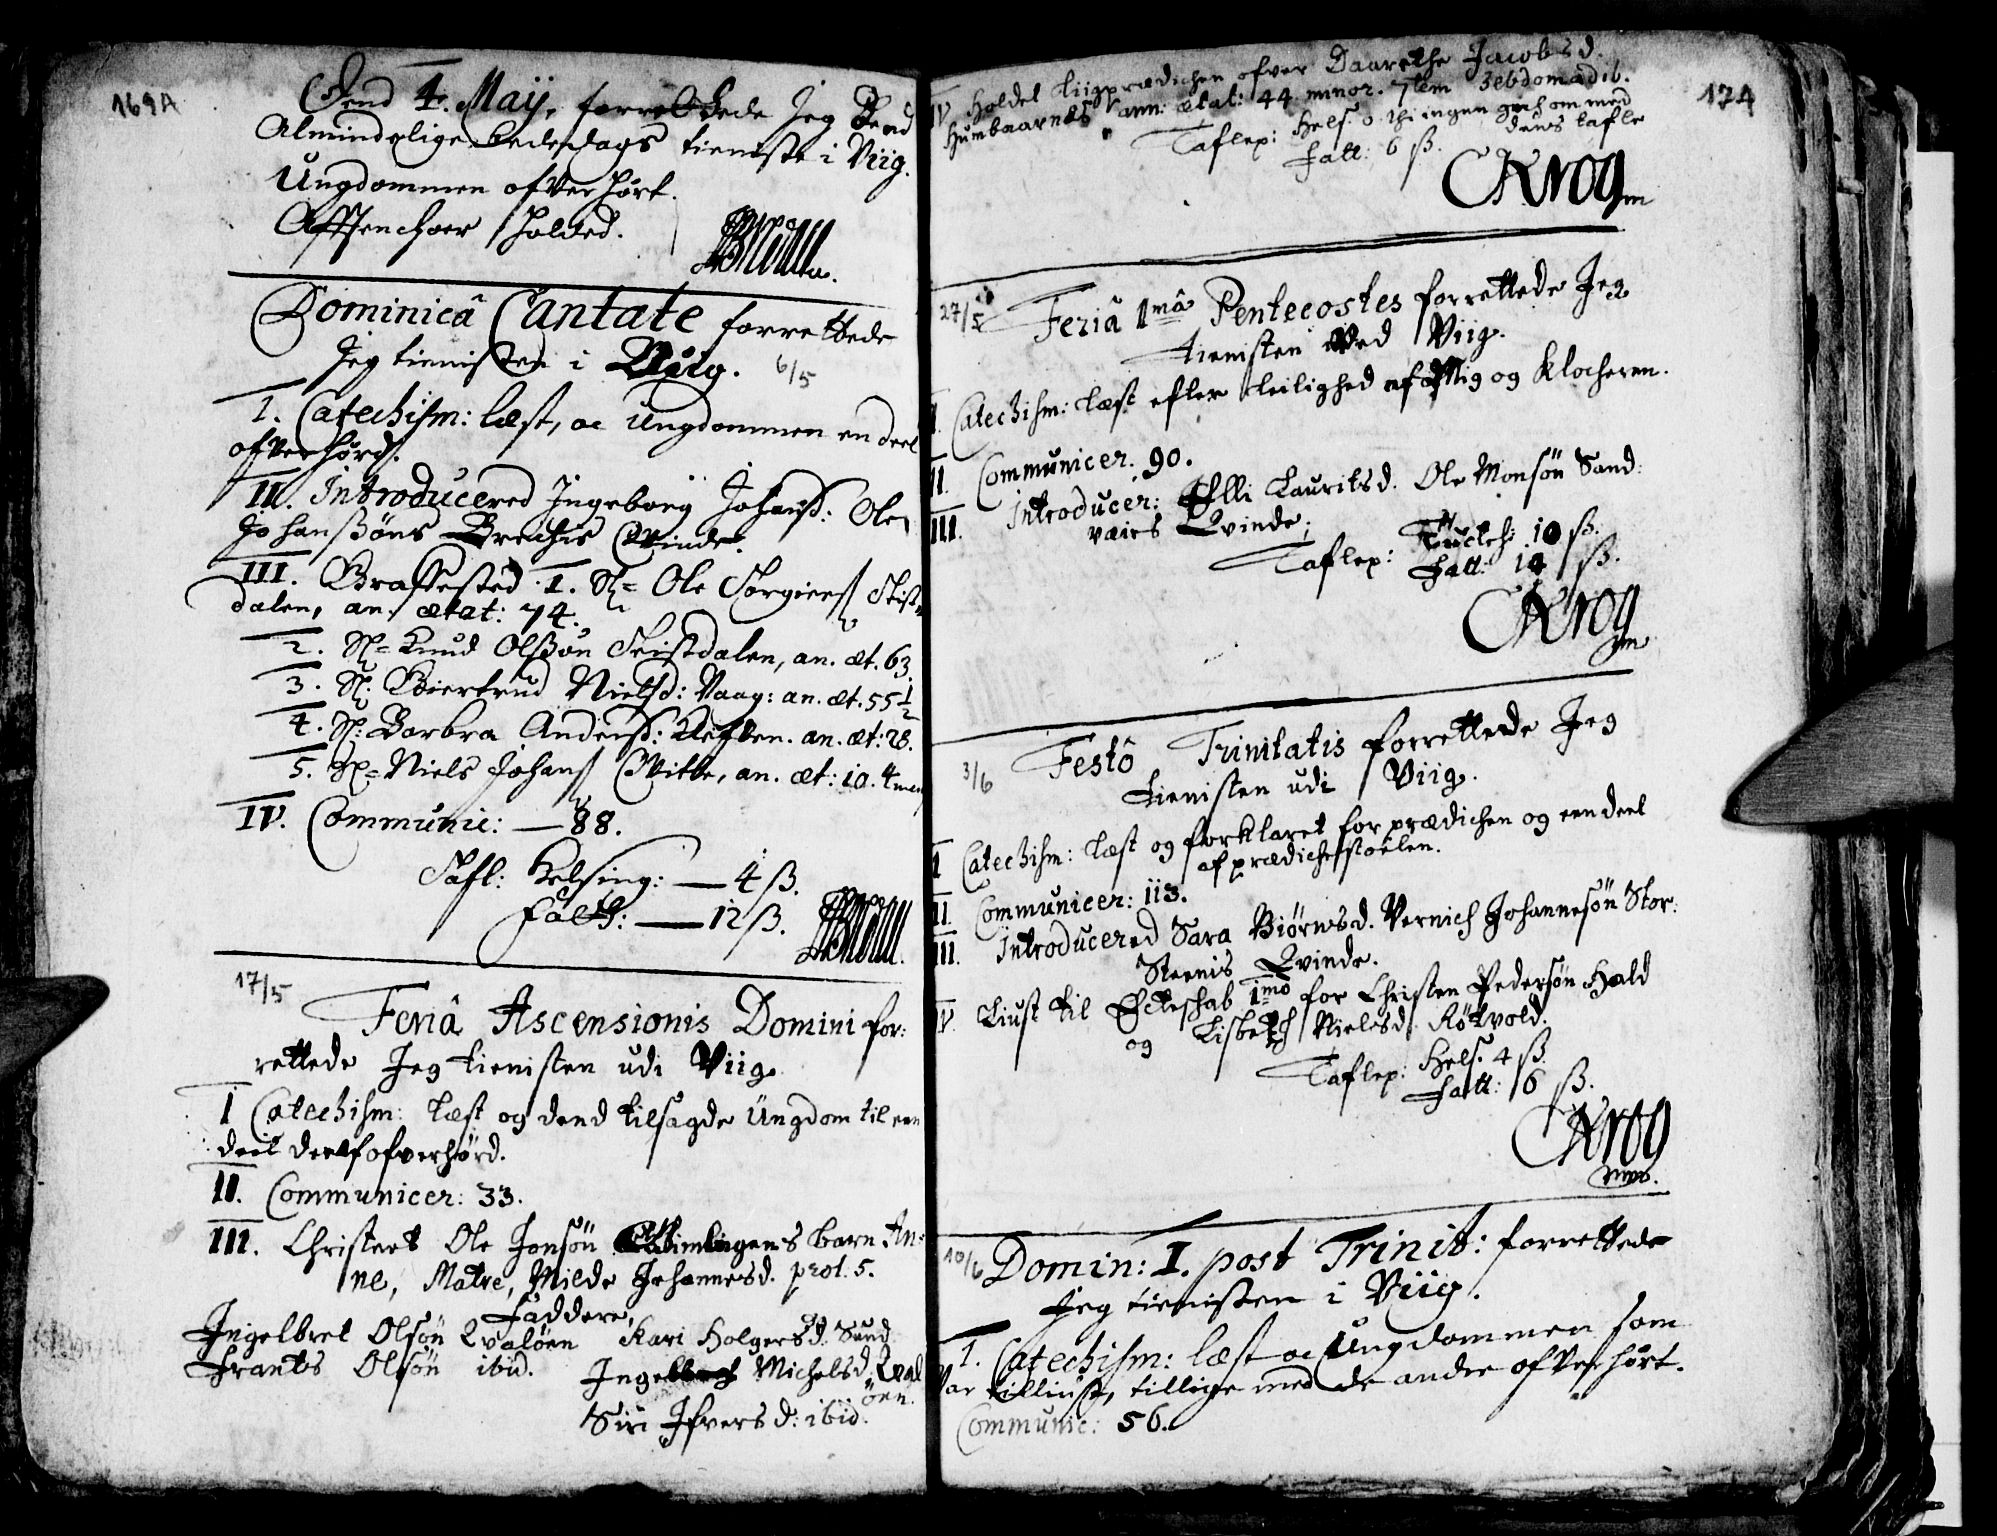 169A
Dend 4. Maij, forrettede Jeg Dend
Almindelige bededags tieniste i Viig.
Ungdommen ofverhørt.
holded.
Dominicâ Cantate forrettede
Jeg tienisten i Viig. 6/5
I. Catechism: læst, oc Ungdommen en deel
ofverhørd.
II. Introducered Ingeborg Johansd: Ole
Johanssøns Qvinde.
III. Graffested 1. Sl= Ole
dalen, an. ætat: 74.
2. Sl= Knud Olssøn Seistdalen, an. æt. 63.
3. Sl: Giertrud Nielsd: Vaag: an. æt. 55 1/2
4. Sl: Barbra Andersd: Kleffven. an. æt: 28.
5. Sl= Niels Johans Hvitte, an. æt: 10. 4 men
IV. Communic: — 88.
Tafl: Helsing: — 4 ß.
Fatt: — 12 ß.
17/5
Feriâ Ascensionis Domini for:
rettede Jeg tienisten udi Viig.
I Catechism: læst og dend tilsagde Ungdom til een
deel ofverhørd.
II. Communicer: 33.
III. Christnet Ole Jonsøn barn An:
ne, Matre, Milde Johannesd. prol. 5.
Faddere,
Ingelbret Olsøn Qvaløen Kari Holgersd. Sund
Frants Olsøn ibid. Michelsd. Qval
øen.
Siri Ifversd: ibid.
174
IV Holdet Liigprædichen ofver Daarethe Jacobsd.
Humbaarnes ann: ætat: 44 minor. 7tem hebdomadib.
Taflep: Hels. 0 thi ingen gich om med
dens tafle
Fatt: 6 ß.
CKrog
27/5
Feriâ 1mâ Pentecostes forrettede Jeg
tienisten Ved Viig.
I. Catechism: læst efter leilighed af Mig og Klocheren.
II. Communicer. 90.
III. Introducer: Elli Lauritsd. Ole Monsøn Sand:
væies Qvinde;
Taflep: 10 ß.
Fatt: 14 ß.
CKrog
3/6
Festô Trinitatis forrettede Jeg
tienisten udi Viig.
I Catechism: læst og forklaret for prædichen og een deel
af prædichestoelen.
II. Communicer: 113.
III. Introducered Sara Biørnsd. Vernich Johannesøn Stor:
Steenis Qvinde.
IV. Liust til Ecteschab 1mo for Christen Pedersøn Hald
og Lisbeth Nielsd. Røtvold.
Taflep: Hels. 4 ß.
Fatt: 6 ß.
CKrog
mpr.
10/6 Domin: I. post Trinit: forrettede
Jeg tienisten i Viig.
I. Catechism: læst oc Ungdommen som
var tilliust, tillige med de andre ofverhørt.
Communic: 56.